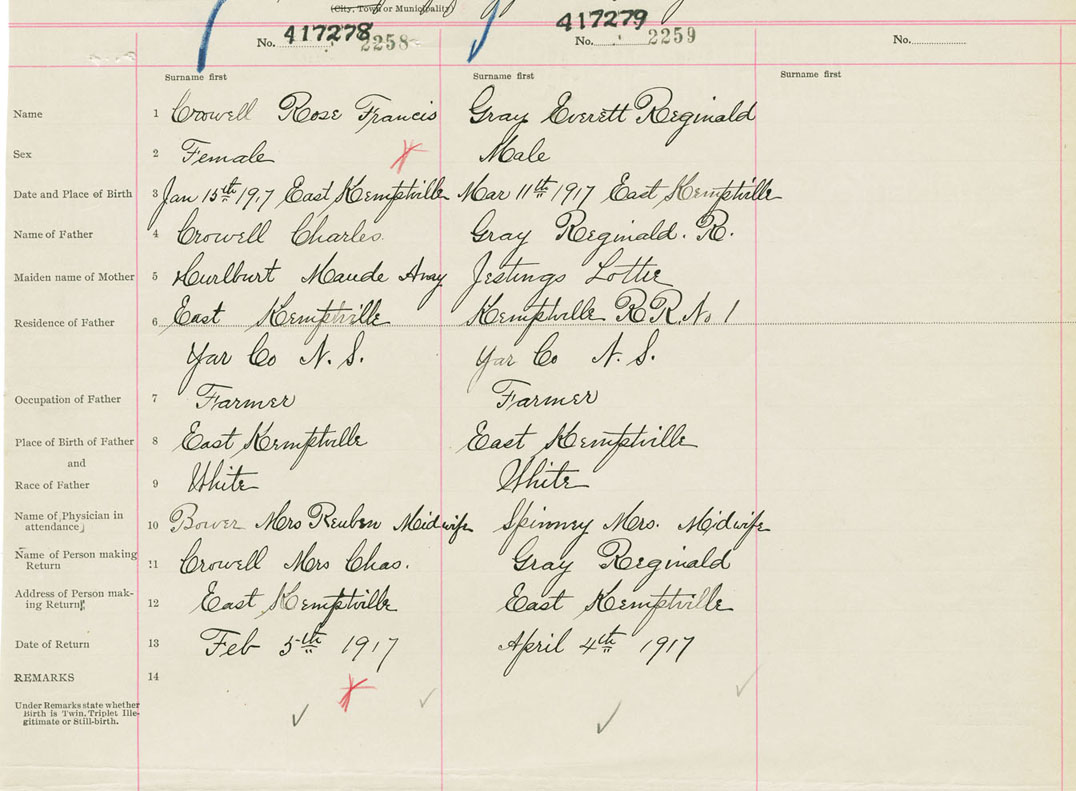 (City, Town or Municipality)
No. 417278 2258
No. 417279 2259
No.
Surname first Surname first Surname first
Name 1 Crowell Rose Francis Gray Everett Reginald
Sex 2 Female Male
Date and Place of Birth 3 Jan 15th 1917 East Kemptville Mar 11th 1917 East Kemptville
Name of Father 4 Crowell Charles Gray Reginald. R.
Maiden name of Mother 5 Hurlburt Maude Jestings Lottie
Residence of Father 6 East Kemptville Kemptville R R. No 1
Yar Co N. S. Yar Co N. S.
Occupation of Father 7 Farmer Farmer
Place of Birth of Father 8 East Kemptville East Kemptville
and
Race of Father 9 White White
Name of Physician in
attendance 10 Bower Mrs Reuben Midwife Spinney Mrs. Midwife
Name of Person making
Return 11 Crowell Mrs Chas. Gray Reginald
Address of Person mak-
ing Return 12 East Kemptville East Kemptville
Date of Return 13 Feb 5th 1917 April 4th 1917
REMARKS 14
Under Remarks state whether
Birth is Twin, Triplet Ille-
gitimate or Still-birth.